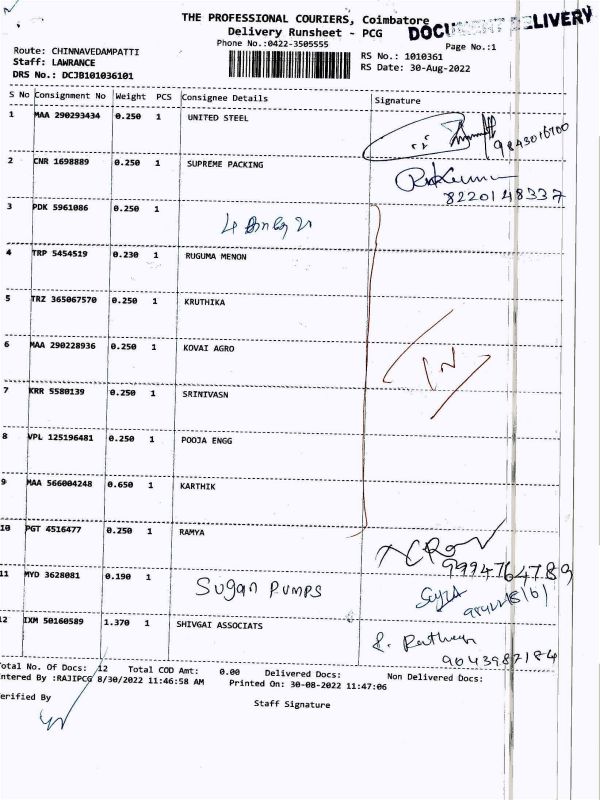 THE PROFESSIONAL COURIERS, Coimbatore
Delivery Runsheet - PCG
Phone No.:0422-3505555
DOCUMENT DELIVERY
Page No.:1
Route: CHINNAVEDAMPATTI
Staff: LAWRANCE
DRS No.: DCJB101036101
RS No.: 1010361
RS Date: 30-Aug-2022
S No Consignment No Weight PCS Consignee Details Signature
1 MAA 290293434 0.250 1 UNITED STEEL
9843016700
2 CNR 1698889 0.250 1 SUPREME PACKING
8220148337
3 PDK 5961086 0.250 1
4 TRP 5454519 0.230 1 RUGUMA MENON
5 TRZ 365067570 0.250 1 KRUTHIKA
6 MAA 290228936 0.250 1 KOVAI AGRO
IN
7 KRR 5580139 0.250 1 SRINIVASN
8 VPL 125196481 0.250 1 POOJA ENGG
9 MAA 566004248 0.650 1 KARTHIK
10 PGT 4516477 0.250 1 RAMYA
9994764789
11 MYD 3628081 0.190 1 Sugan Pumps
12 IXM 50160589 1.370 1 SHIVGAI ASSOCIATS
9043987184
Total No. Of Docs: 12 Total COD Amt: 0.00 Delivered Docs: Non Delivered Docs:
Entered By :RAJIPCG 8/30/2022 11:46:58 AM Printed On: 30-08-2022 11:47:06
Verified By
Staff Signature